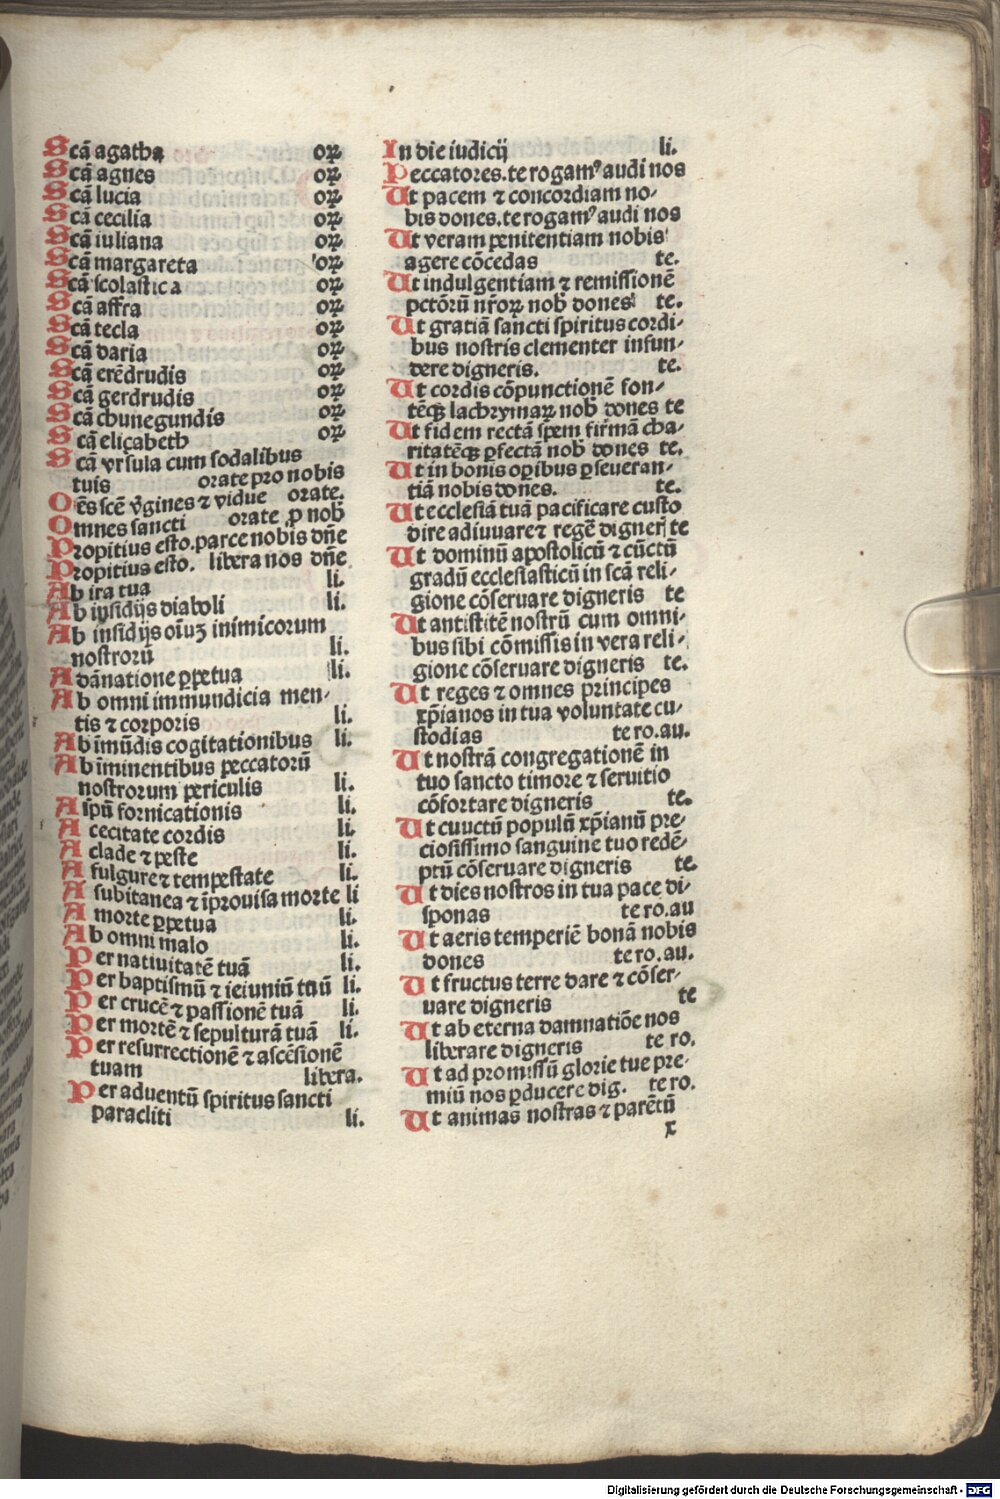 Scā agatha oꝝ
Scā agnes oꝝ
Scā lucia oꝝ
Scā cecilia oꝝ
Scā iuliana oꝝ
Scā margareta oꝝ
Scā scolastica oꝝ
Scā affra oꝝ
Scā tecla oꝝ
Scā daria oꝝ
Scā erēdrudis oꝝ
Scā gerdrudis oꝝ
Scā chunegundis oꝝ
Scā elicabeth oꝝ
Scā vrsula cum sodalibus
tuis orate pro nobis
Oēs scē v̄gines ⁊ vidue orate.
Omnes sancti orate ꝓ nob̄
Propitius esto. parce nobis dn̄e
Propitius esto. libera nos dn̄e
Ab ira tua li.
Ab insidijs diaboli li.
Ab insidijs oīuꝫ inimicorum
nostrorū li.
A dānatione ꝑpetua li.
Ab omni immundicia men-
tis ⁊ corporis li.
Ab īmūdis cogitationibus li.
Ab īminentibus peccatorū
nostrorum periculis li.
A spū fornicationis li.
A cecitate cordis li.
A clade ⁊ peste li.
A fulgure ⁊ tempestate li.
A subitanea ⁊ īprouisa morte li
A morte ꝑpetua li.
Ab omni malo li.
Per natiuitatē tuā li.
Per baptismū ⁊ ieiuniū tuū li.
Per crucē ⁊ passionē tuā li.
Per mortē ⁊ sepulturā tuā li.
Per resurrectionē ⁊ ascēsionē
tuam libera.
Per aduentū spiritus sancti
paracliti li.
In die iudicij li.
Peccatores. te rogamꝰ audi nos
Ut pacem ⁊ concordiam no-
bis dones. te rogamꝰ audi nos
Ut veram penitentiam nobis
agere cōcedas te.
Ut indulgentiam ⁊ remissionē
pctōrū nr̄oꝝ nob̄ dones te.
Ut gratiā sancti spiritus cordi-
bus nostris clementer infun-
dere digneris. te.
Ut cordis cōpunctionē fon-
tēqꝫ lachrymaꝝ nob̄ dones te
Ut fidem rectā spem firmā cha-
ritatēqꝫ ꝑfectā nob̄ dones te.
Ut in bonis oꝑibus ꝑseueran-
tiā nobis dones. te.
Ut ecclesiā tuā pacificare custo
dire adiuuare ⁊ regē digner̄ te
Ut dominū apostolicū ⁊ cūctū
gradū ecclesiasticū in scā reli-
gione cōseruare digneris te
Ut antistitē nostrū cum omni-
bus sibi cōmissis in vera reli-
gione cōseruare digneris te.
Ut reges ⁊ omnes principes
xp̄ianos in tua voluntate cu-
stodias te ro. au.
Ut nostrā congregationē in
tuo sancto timore ⁊ seruitio
cōfortare digneris te.
Ut cuuctū populū xp̄ianū pre-
ciosissimo sanguine tuo redē-
ptū cōseruare digneris te.
Ut dies nostros in tua pace di-
sponas te ro. au
Ut aeris temperiē bonā nobis
dones te ro. au.
Ut fructus terre dare ⁊ cōser-
uare digneris te
Ut ab eterna damnatiōe nos
liberare digneris te ro.
Ut ad promissū glorie tue pre-
miū nos ꝓducere dig. te ro.
Ut animas nostras ⁊ parētū
x
Digitalisierung gefördert durch die Deutsche Forschungsgemeinschaft - DFG